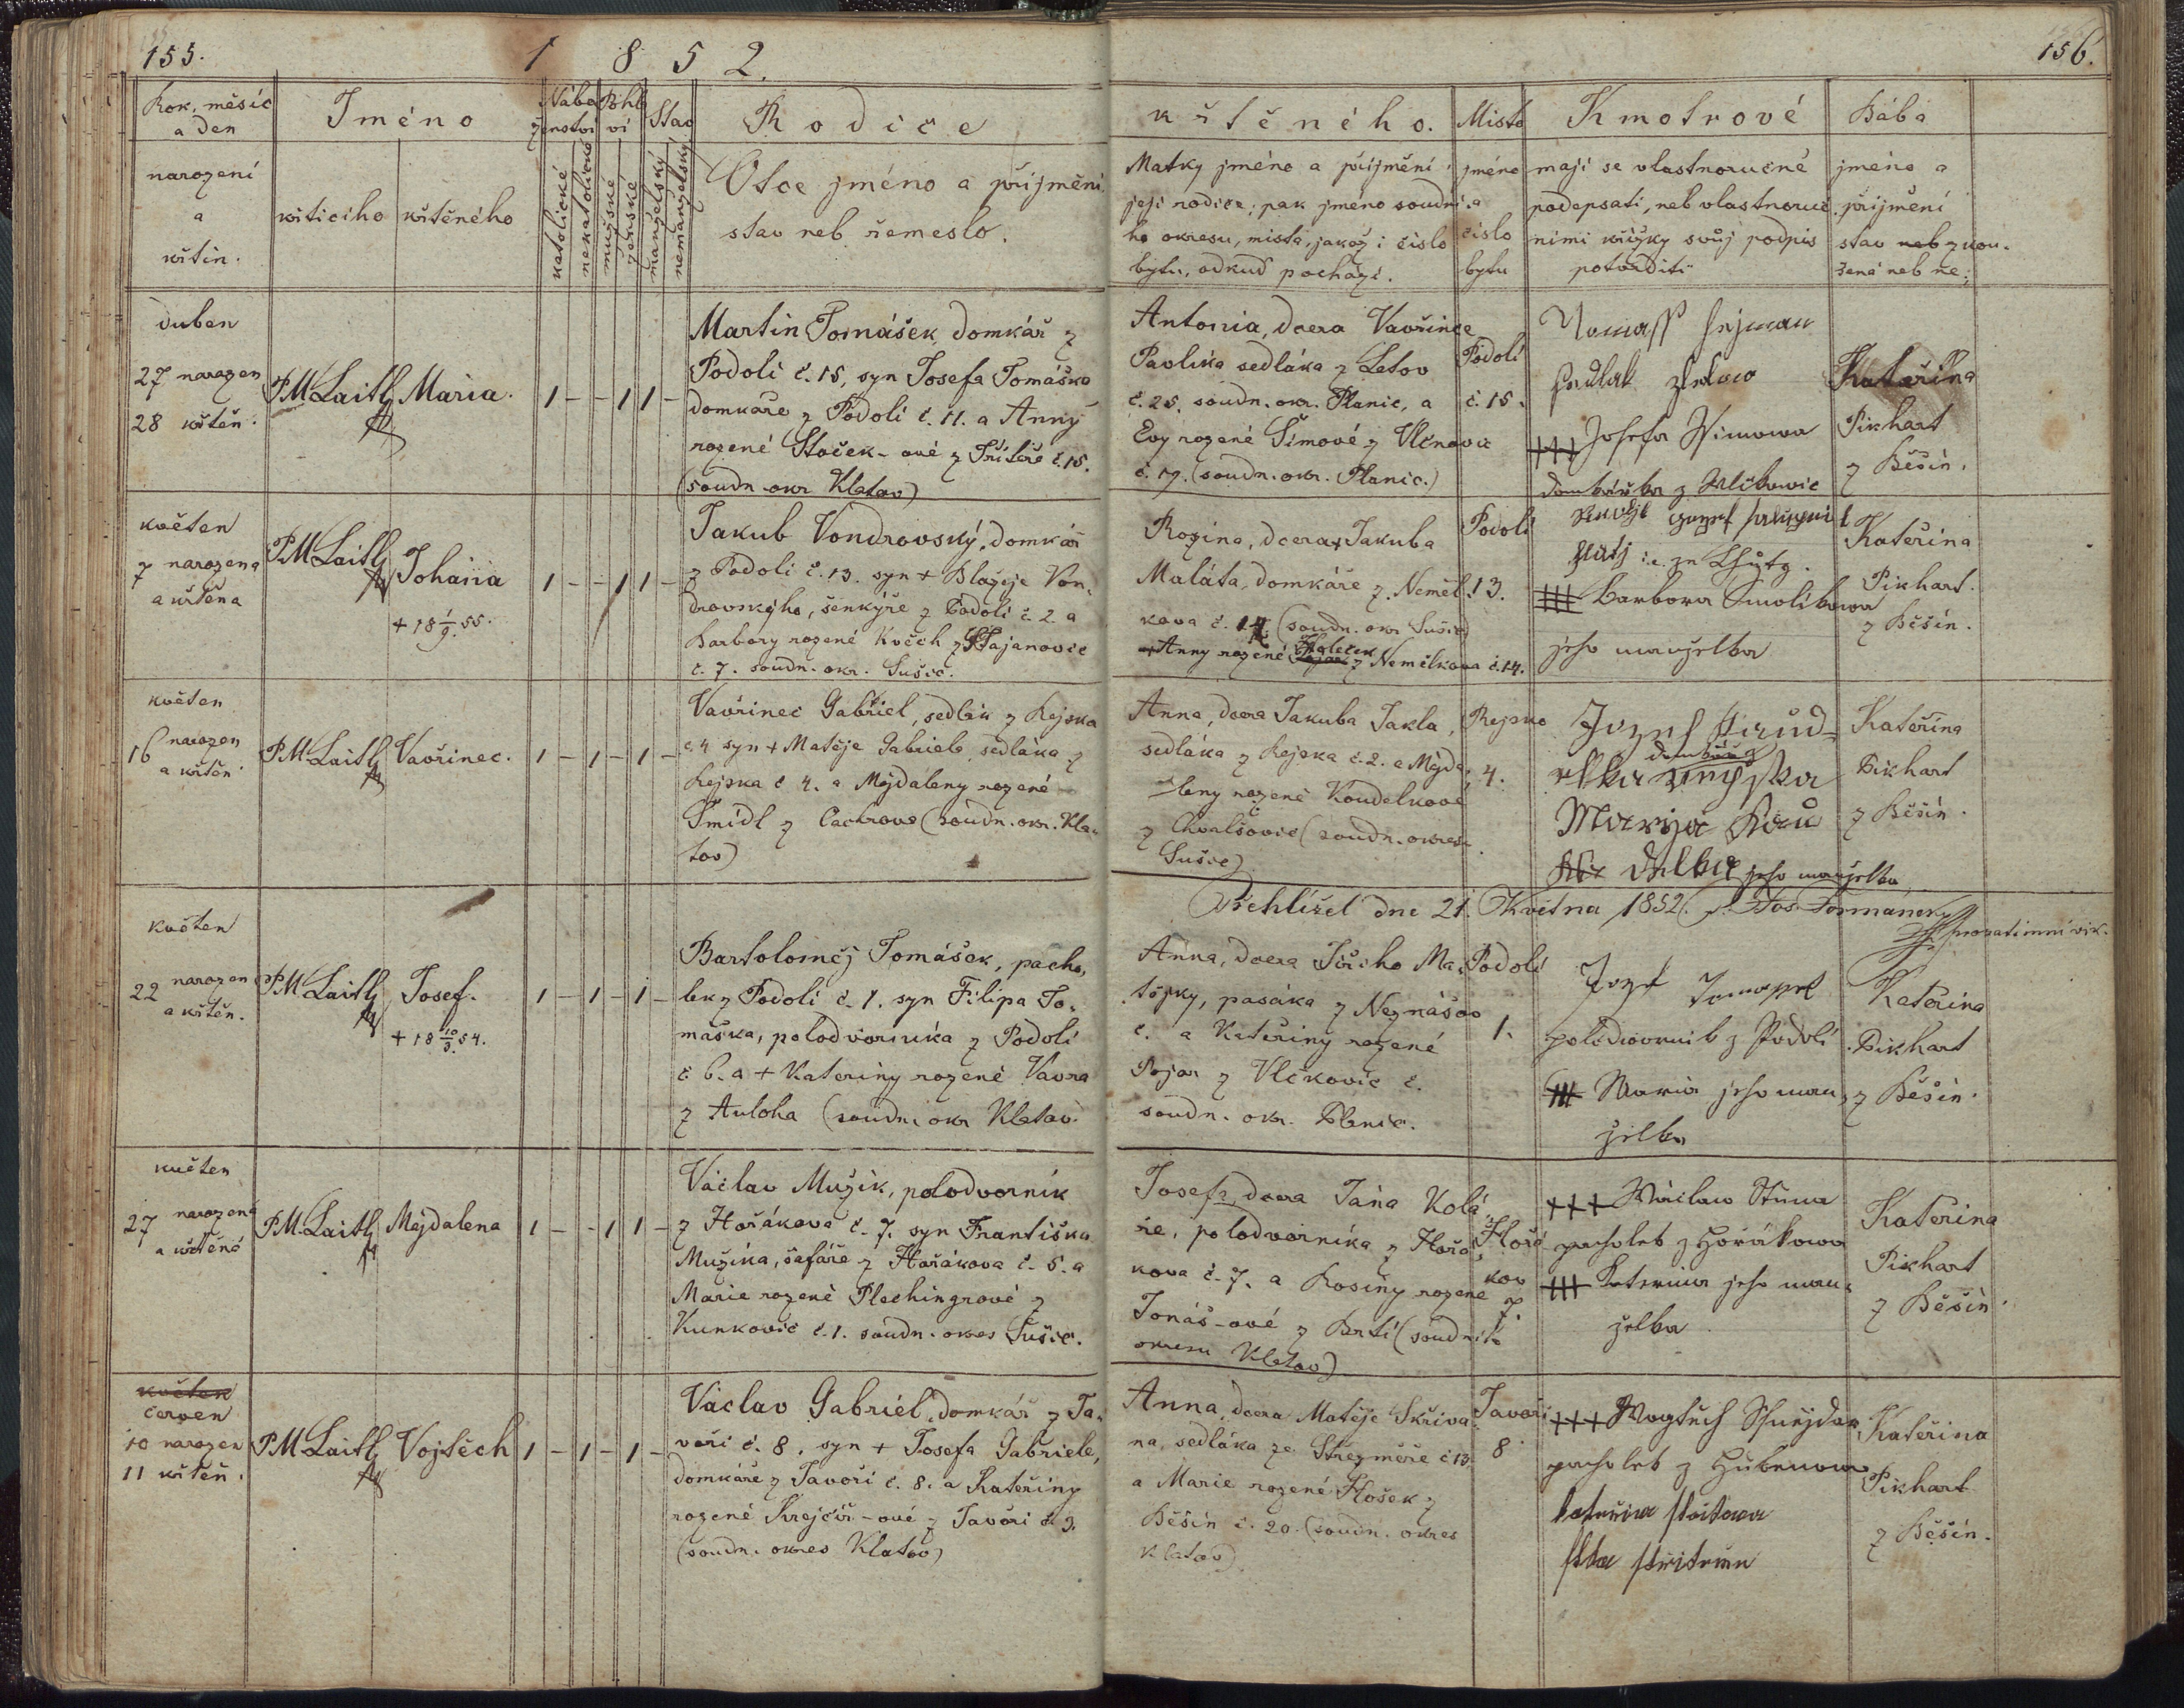 155.
1 8 5 2.
156.
Rok, měsíc
a den
narození
a
křtin.
Jméno
křticího
křtěného
Nábo
ženství
katolické
nekatolické
Pohla
ví
mužské
ženské
Stav
manželský
nemanželský
Rodiče
Otce jméno a příjmění
stav neb řemeslo.
křtěného.
Matky jméno a příjmění
její rodiče; pak jméno soudní-
ho okresu, místa, jakož i číslo
bytu, odkud pochází.
Místo
jméno
a
číslo
bytu
Kmotrové
mají se vlastnoručně
podepsati, neb vlastnoruč.
ními křížky svůj podpis
potvrditi
Bába
jméno a
příjmění
stav neb zkou-
šená neb ne;
duben
27 narozen
28 křtěn.
P M Laitl
Maria.
1 - - 1 1 -
Martin Tomášek, domkář z
Podolí č. 15, syn Josefa Tomáška
domkáře z Podolí č. 11. a Anny
rozené Stoček-ové z č. 15.
(soudn. okr Klatov)
Antonia, dcera Vavřince
Pavlíka sedláka z Letov
č. 25. soudn. okr. Planic, a
Evy rozené Šimové z
č. 17. (soudn. okr. Planic.)
Podolí
č. 15.
Tomass
Sedlak
+++ Josefa
domkářka z
Kateřina
Pikhart
z Běšin.
květen
7 narozena
a křtěna
P M Laitl
Johana
+ 18 1/9. 55.
1 - - 1 1 -
Jakub Vondrovský, domkář
z Podolí č. 13. syn + Blažeje Von-
drovského, šenkýře z Podolí č. 2 a
Barbory rozené Kvěch z
č. 7. soudn. okr. Sušic.
Rozina, dcera + Jakuba
Maláta, domkáře z Němel-
kova č. 14. (soudn. okr Sušic)
+ Anny rozené Holeček z Němelkova č. 14.
Podolí
13.
+++ Barbora Smolikowa
jeho manzelka
Kateřina
Pikhart.
z Běšin.
květen
16 narozen
a křtěn
P M Laitl
Vavřinec.
1 - 1 - 1 -
Vavřinec Gabriel, sedlák z Rejska
č. 4 syn + Matěje Gabriele sedláka z
Rejska č 4. a Majdaleny rozené
Šmídl z Čachrova (soudn. okr. Kla-
tov)
Anna, dcera Jakuba Jakla,
sedláka z Rejska č. 2. a Majda-
leny rozené Koudelkové
z Chvalšovic (soudn. okres
Sušic)
Rejsko
4.
Jozef
domkář
Marija
jeho manzelka
Kateřina
Pikhart
z Běšin.
Přehlížel dne 21. Května 1852. Jos. Formanek
prozatimní vik.
květen
22 narozen
a křtěn.
P M Laitl
Josef.
+ 18 10/9. 54.
1 - 1 - 1 -
Bartoloměj Tomášek, pacho-
lek z Podolí č. 1. syn Filipa To-
máška, polodvorníka z Podolí
č 6. a + Kateriny rozené Vavra
z Auloha (soudní okr Klatov.
Anna, dcera Jiřího Ma-
tějky, pasáka z Neznášov
č. a Kateřiny rozené
Pojar z Vlčkovic č.
soudn. okr. Planic.
Podolí
1.
Jozef Tomassek
polodwornik z Podolí
+++ Maria jeho man-
zelka
Kateřina
Pikhart
z Běšin.
květen
27 narozená
a křtěná
P M Laitl
Majdalena
1 - - 1 1 -
Václav Mužík, polodvorník
z Hořákova č. 7. syn Františka
Mužíka, šafáře z Hořákova č. 5. a
Marie rozené Plechingrové z
Kunkovic č. 1. soudn. okres Sušic.
Josefa, dcera Jana Kolá-
ře, polodvorníka z Hořá-
kova č. 7. a Rosiny rozené
Jonáš-ové z Brtí (soudního
okresu Klatov)
Hořá
kov
7.
+++ Wáclaw
pacholek z Horákowa
+++ Katerina jeho man-
zelka
Kateřina
Pikhart
z Běšin.
květen
červen
10 narozen
11 křtěn.
P M Laitl
Vojtěch
1 - 1 - 1 -
Václav Gabriel, domkář z Ja-
voří č. 8, syn + Josefa Gabriele,
domkáře z Javoří č. 8. a Kateřiny
rozené Krejčíř-ové z Javoří č. 3.
(soudn. okres Klatov)
Anna, dcera Matěje Skřiva-
na, sedláka ze Střezměře č 13.
a Marie rozené Hošek z
Běšin č. 20. (soudn. okres
Klatov)
Javoří
8
+++ Wogtěch
pacholek z
Kateřina
Pikhart
z Běšin.